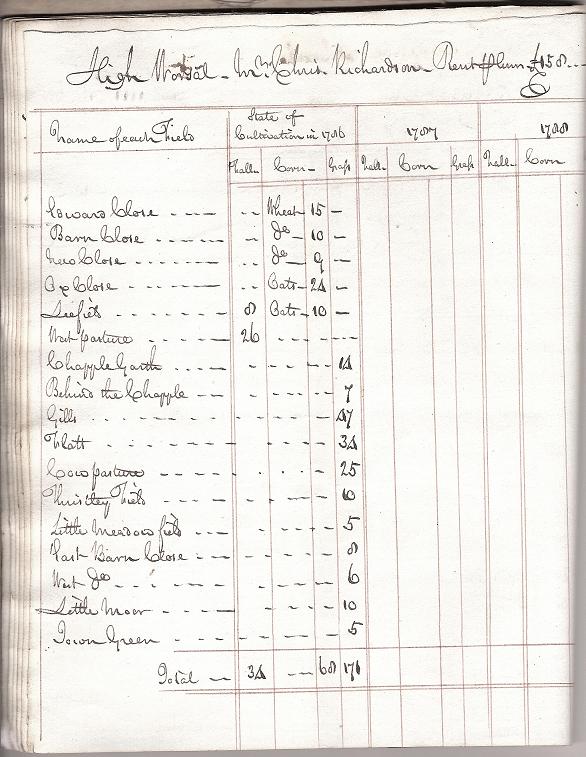 High Worsal - Mr. Chris. Richardson - Rent p Ann. £158 --
Name of each Field
State of Cultivation in 1786 1787 1788
Fall- Corn - Grass Fall- Corn Grass Fall- Corn
Coward Close - - - - -- Wheat 15 -
Barn Close - - - - - Do - 10 -
New Close - - - - -- Do - 9 -
Ox Close - - - - -- Oats - 24 -
8 Oats - 10 -
West pasture - - - 26 - - - -
Chapple Garth - - - - - - 14
Behind the Chapple - - - - - - 7
Gills - - - - - - 47
Flatt - - - - - - 34
Cow pasture - - - - - - 25
Thristley Field - - - - - - 10
Little Meadow field - - - - - - 5
East Barn Close - - - - - - 8
West Do - - - - - - 6
Little Moor - - - - - - 10
Town Green - - - - - - 5
Total - 34 - - 68 171